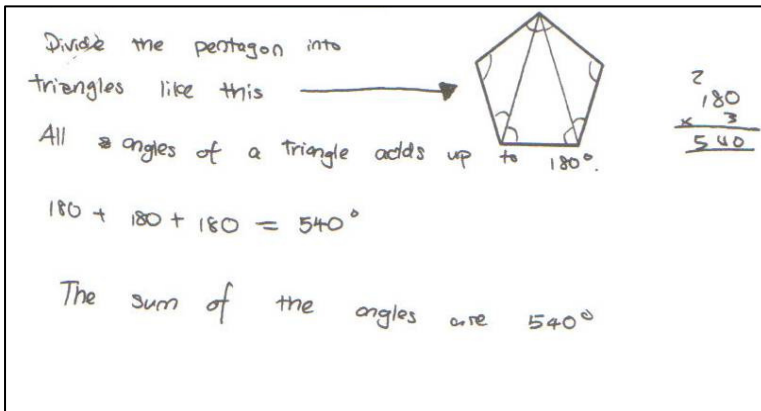 Divide the pentagon into
triangles like this
All angles of a triangle adds up to 180°.
2
180
x 3
540
180 + 180 + 180 = 540°
The sum of the angles are 540°